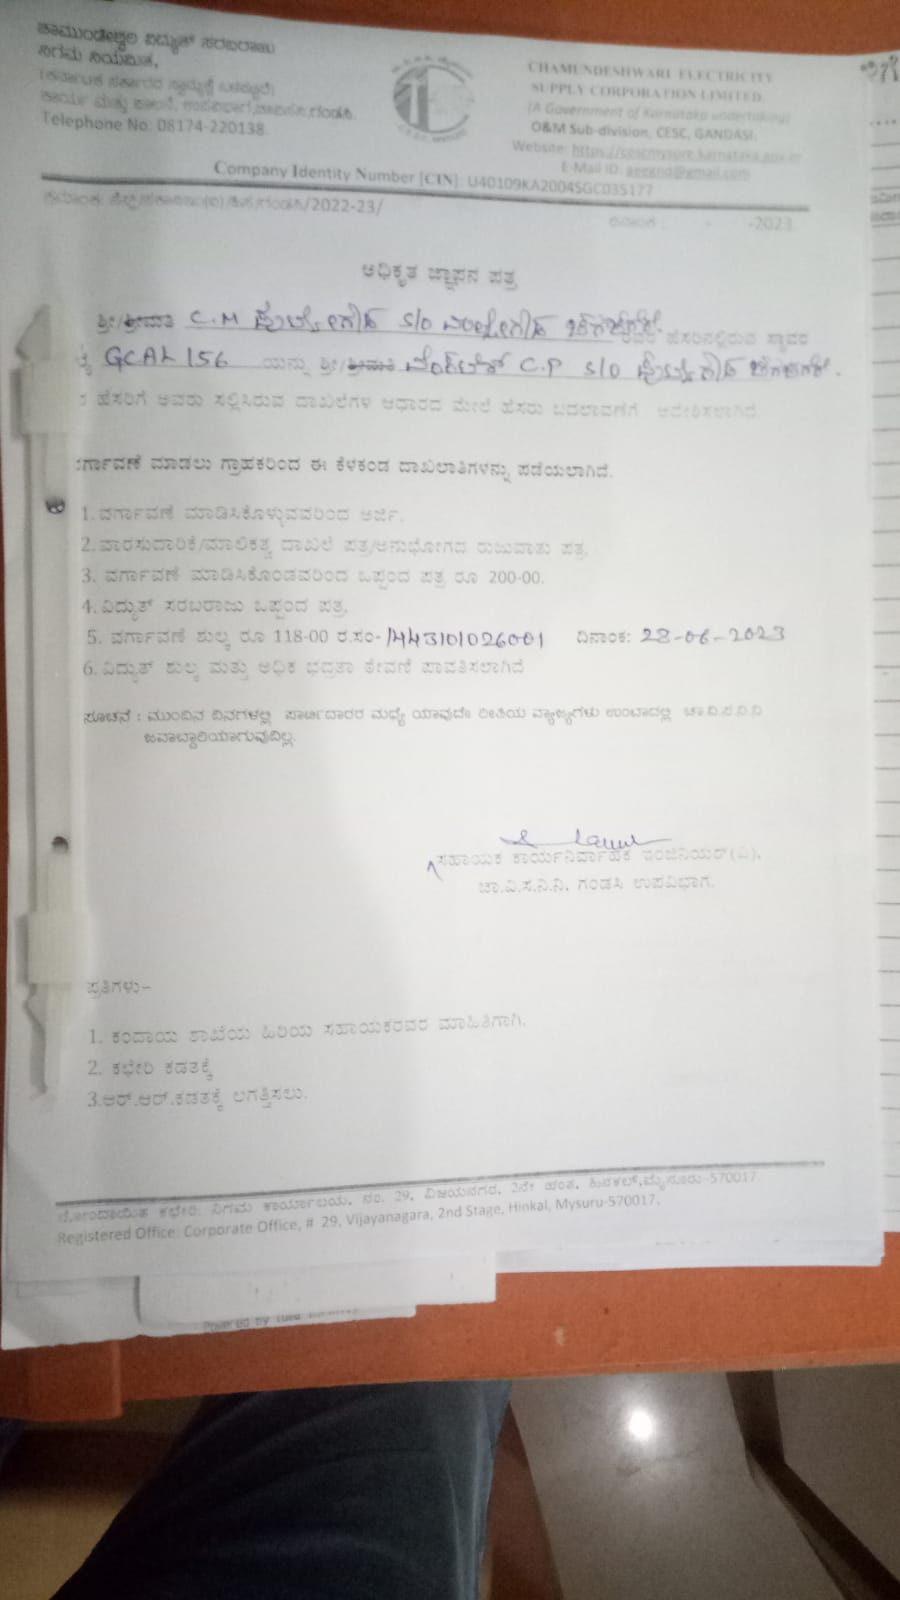 ಚಾಮುಂಡೇಶ್ವರಿ ವಿದ್ಯುತ್ ಸರಬರಾಜು
ನಿಗಮ ನಿಯಮಿತ,
Telephone No: 08174-220138.
CHAMUNDESHWARI ELECTRICITY
SUPPLY CORPORATION LIMITED.
(A Government of Karnataka undertaking)
O&M Sub-division, CESC, GANDASI.
Website: https://cescmysore.karnataka.gov.in
E-Mail ID:
Company Identity Number [CIN]: U40109KA2004SGC035177
/2022-23/
ದಿನಾಂಕ : - -2023.
ಅಧಿಕೃತ ಜ್ಞಾಪನ ಪತ್ರ
ಶ್ರೀ/ಶ್ರೀಮತಿ C.M S/O ರವರ ಹೆಸರಿನಲ್ಲಿರುವ ಸ್ಥಾವರ
GCAL 156 ಯನ್ನು ಶ್ರೀ/ಶ್ರೀಮತಿ C.P S/O
ಹೆಸರಿಗೆ ಅವರು ಸಲ್ಲಿಸಿರುವ ದಾಖಲೆಗಳ ಆಧಾರದ ಮೇಲೆ ಹೆಸರು ಬದಲಾವಣೆಗೆ ಆದೇಶಿಸಲಾಗಿದೆ.
ರ್ಗಾವಣೆ ಮಾಡಲು ಗ್ರಾಹಕರಿಂದ ಈ ಕೆಳಕಂಡ ದಾಖಲಾತಿಗಳನ್ನು ಪಡೆಯಲಾಗಿದೆ.
1. ವರ್ಗಾವಣೆ ಮಾಡಿಸಿಕೊಳ್ಳುವವರಿಂದ ಅರ್ಜಿ.
2. ವಾರಸುದಾರಿಕೆ/ಮಾಲಿಕತ್ವ ದಾಖಲೆ ಪತ್ರ/ಅನುಭೋಗದ ರುಜುವಾತು ಪತ್ರ.
3. ವರ್ಗಾವಣೆ ಮಾಡಿಸಿಕೊಂಡವರಿಂದ ಒಪ್ಪಂದ ಪತ್ರ ರೂ 200-00.
4. ವಿದ್ಯುತ್ ಸರಬರಾಜು ಒಪ್ಪಂದ ಪತ್ರ.
5. ವರ್ಗಾವಣೆ ಶುಲ್ಕ ರೂ 118-00 ರ.ಸಂ-1443101026001 ದಿನಾಂಕ: 28-06-2023
6. ವಿದ್ಯುತ್ ಶುಲ್ಕ ಮತ್ತು ಅಧಿಕ ಭದ್ರತಾ ಠೇವಣಿ ಪಾವತಿಸಲಾಗಿದೆ
ಸೂಚನೆ : ಮುಂದಿನ ದಿನಗಳಲ್ಲಿ ಪಾರ್ಟಿದಾರರ ಮಧ್ಯೆ ಯಾವುದೇ ರೀತಿಯ ವ್ಯಾಜ್ಯಗಳು ಉಂಟಾದಲ್ಲಿ ಚಾ.ವಿ.ಸ.ನಿ.ನಿ
ಜವಾಬ್ದಾರಿಯಾಗುವುದಿಲ್ಲ.
ಸಹಾಯಕ ಕಾರ್ಯನಿರ್ವಾಹಕ ಇಂಜಿನಿಯರ್(ವಿ),
ಚಾ.ವಿ.ಸ.ನಿ.ನಿ, ಗಂಡಸಿ ಉಪವಿಭಾಗ.
ಪ್ರತಿಗಳು-
1. ಕಂದಾಯ ಶಾಖೆಯ ಹಿರಿಯ ಸಹಾಯಕರವರ ಮಾಹಿತಿಗಾಗಿ.
2. ಕಛೇರಿ ಕಡತಕ್ಕೆ
3.ಆರ್.ಆರ್.ಕಡತಕ್ಕೆ ಲಗತ್ತಿಸಲು.
ನೋಂದಾಯಿತ ಕಛೇರಿ: ನಿಗಮ ಕಾರ್ಯಾಲಯ, ನಂ. 29, ವಿಜಯನಗರ, 2ನೇ ಹಂತ, ಹಿನಕಲ್,ಮೈಸೂರು-570017.
Registered Office: Corporate Office, # 29, Vijayanagara, 2nd Stage, Hinkal, Mysuru-570017.
Powered by